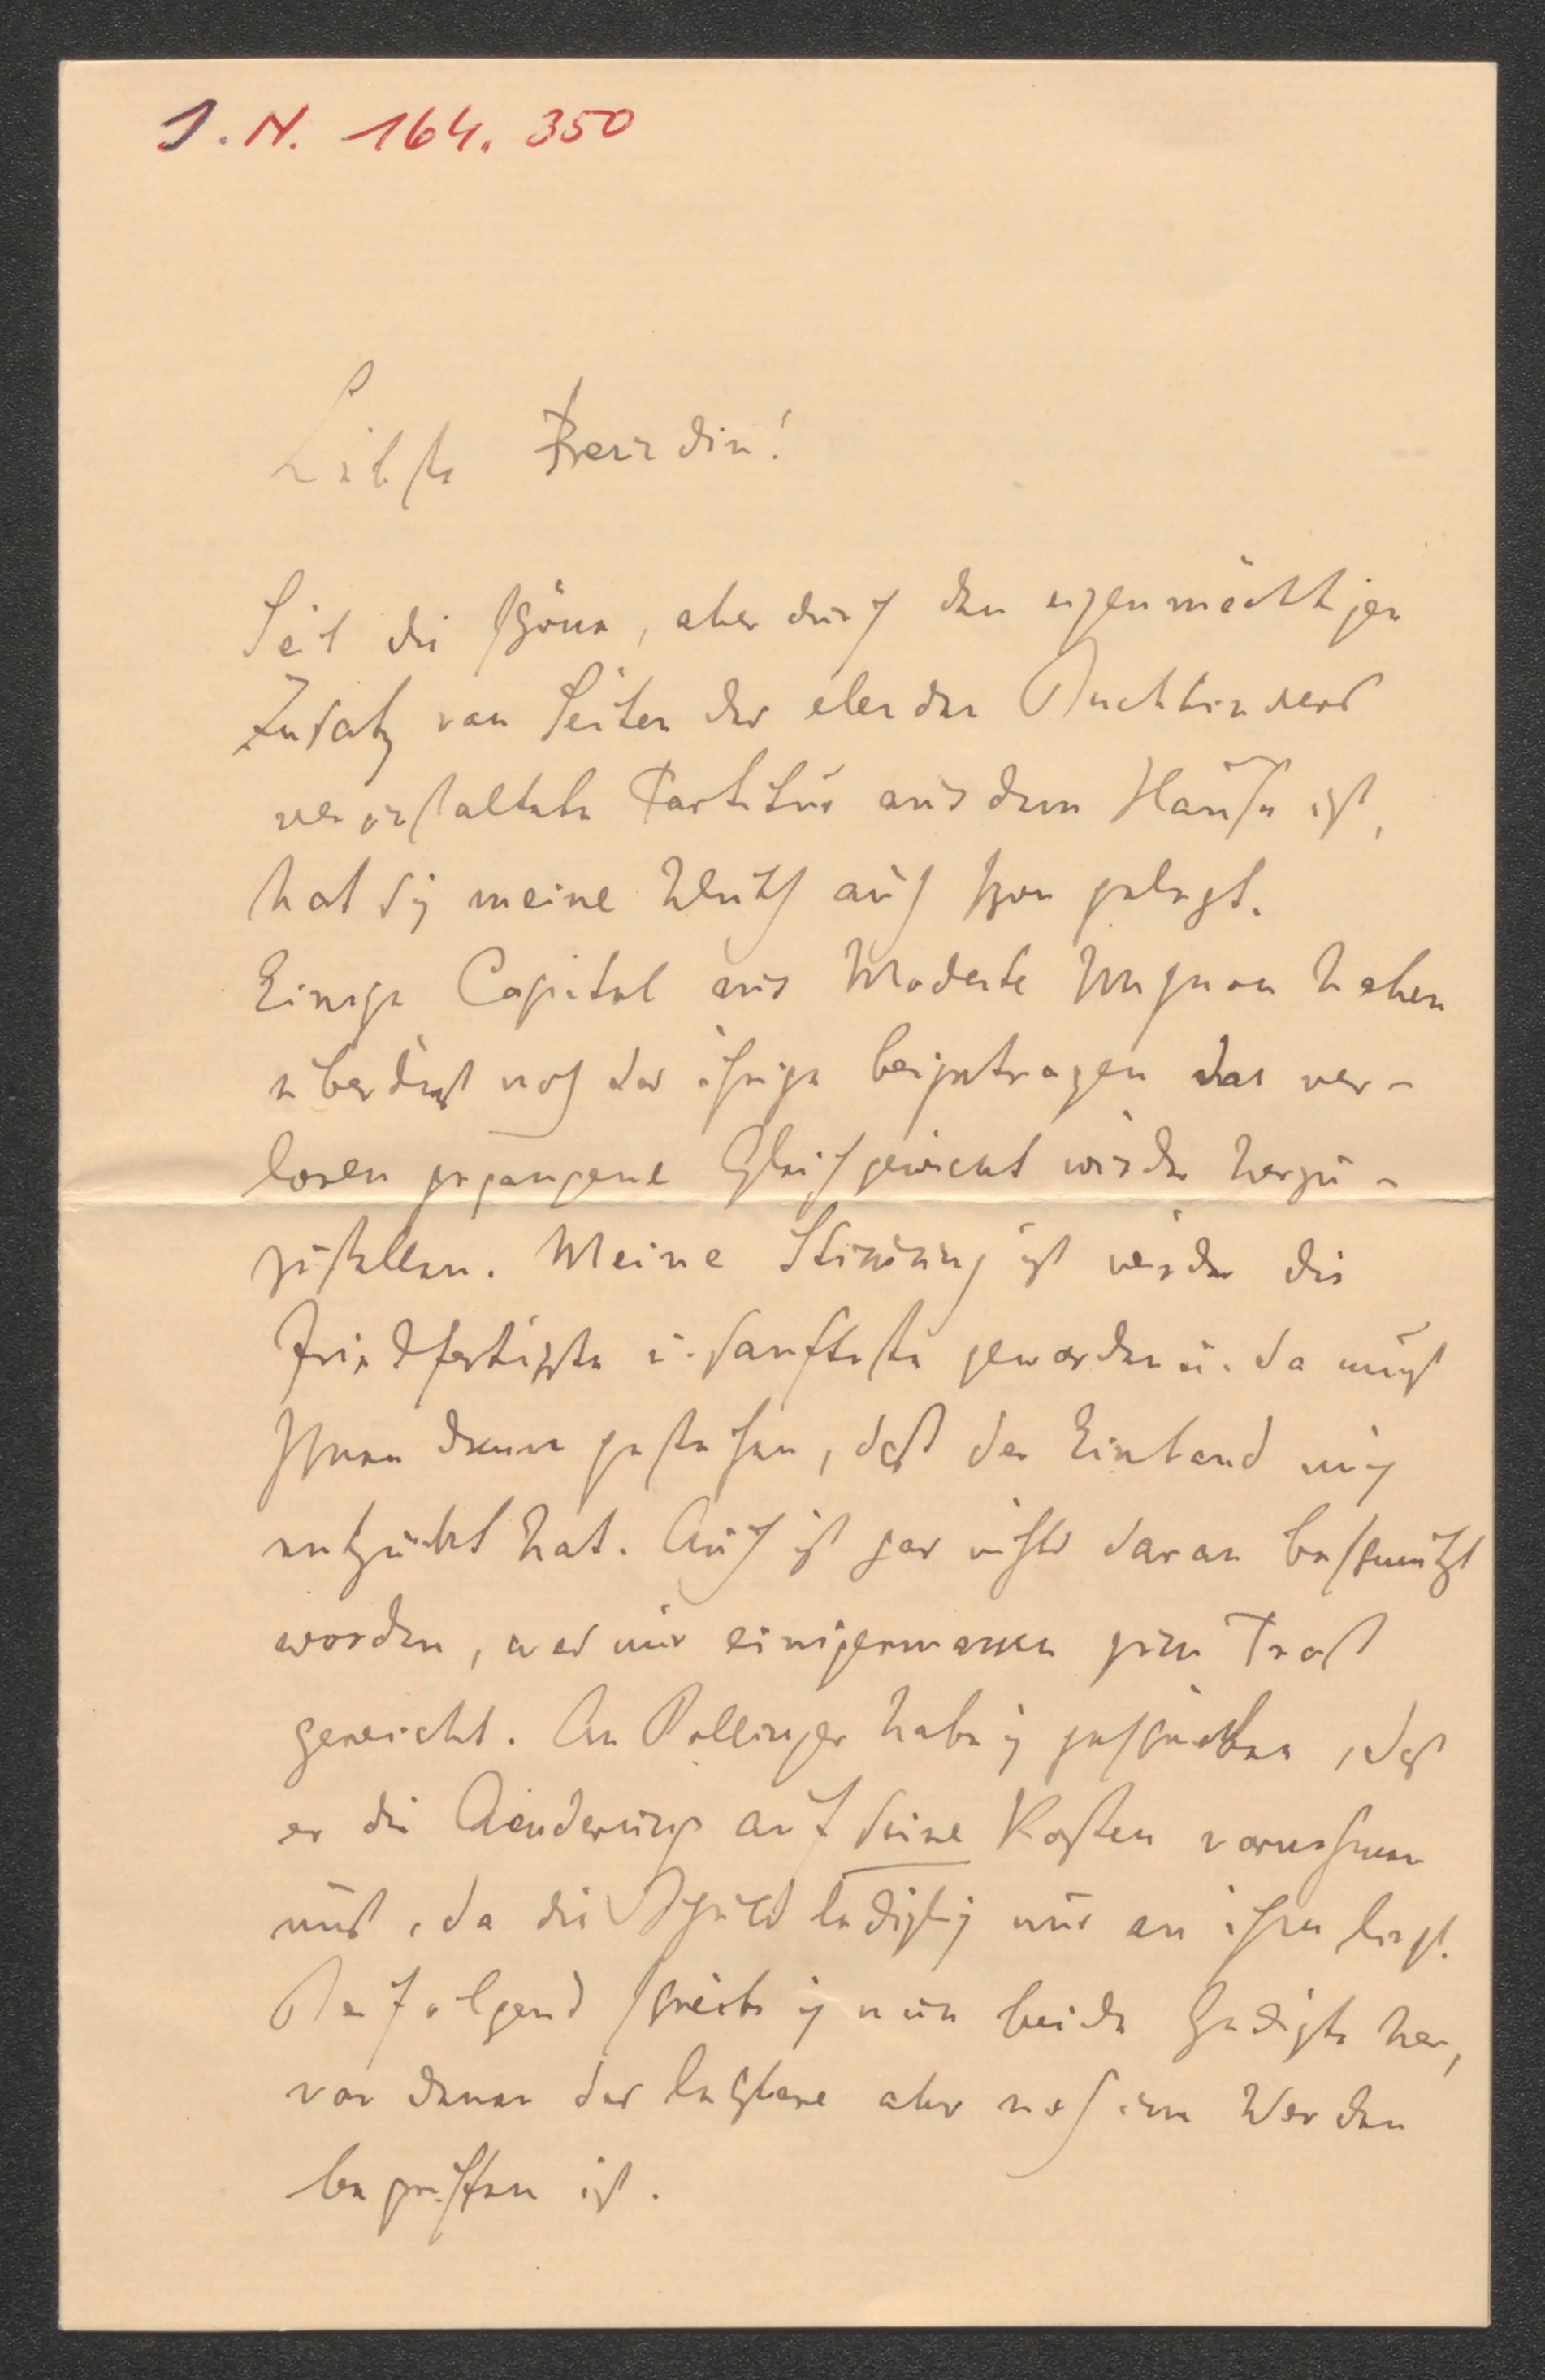 J. N. 164. 350
Liebste Freundin!
Seit die schöne, aber durch den eigenmächtigen
Zusatz von Seiten des elenden Buchbinders
verunstaltete Partitur aus dem Hause ist,
hat sich meine Wuth auch schon gelegt.
Einige Capitel aus Modeste Mignon haben
überdieß noch das ihrige beigetragen das ver-
loren gegangene Gleichgewicht wieder herzu-
zustellen. Meine Stimmung ist wieder die
friedfertigste u. sanfteste geworden u. da muß
Ihnen denn gestehen, daß der Einband mich
entzückt hat. Auch ist gar nichts daran beschmutzt
worden, was mir einigermassen zum Trost
gereicht. An Pollinger habe ich geschrieben, daß
er die Aenderung auf seine Kosten vornehmen
muß, da die Schuld lediglich nur an ihm liegt.
Befolgend schreibe ich nun beide Gedichte her,
von denen das letztere aber noch im Werden
begriffen ist.